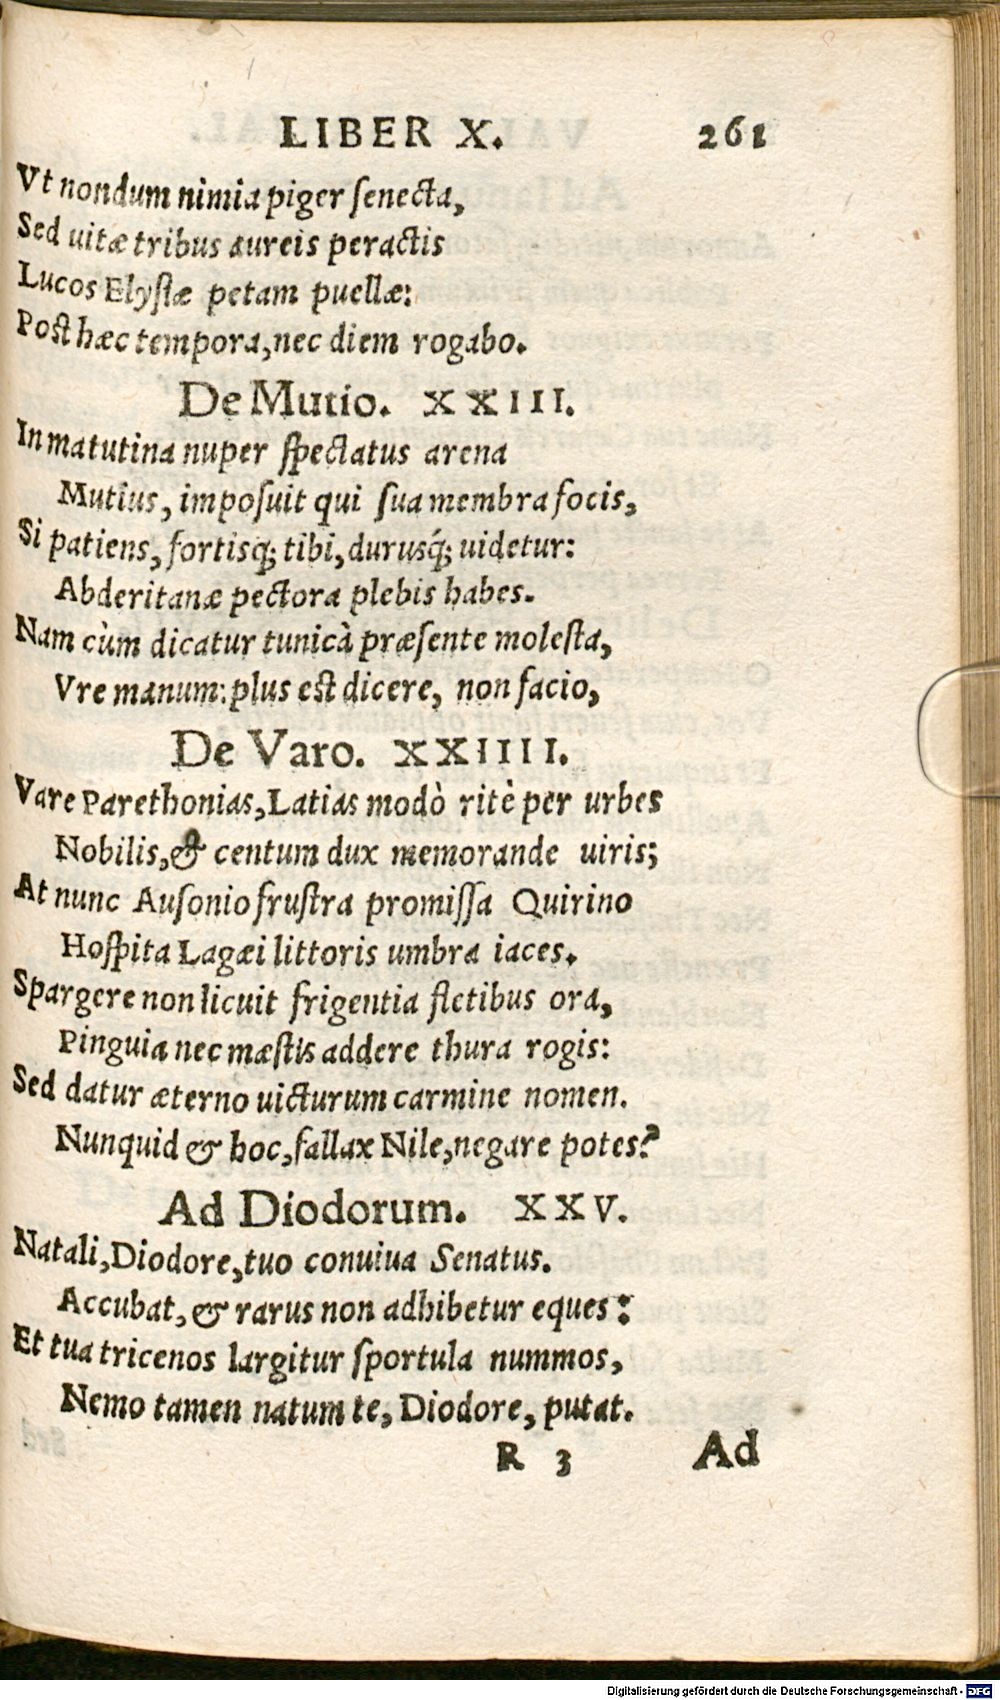 LIBER X. 261
Vt nondum nimia piger ſenecta,
Sed uitæ tribus aureis peractis
Lucos Elyſiæ petam puellæ:
Poſt hæc tempora, nec diem rogabo.
De Mutio. XXIII.
In matutina nuper ſpectatus arena
Mutius, impoſuit qui ſua membra focis,
Si patiens, fortisq́; tibi, durusq́; uidetur:
Abderitanæ pectora plebis habes.
Nam cùm dicatur tunicà præſente moleſta,
Vre manum: plus eſt dicere, non facio,
De Varo. XXIIII.
Vare Parethonias, Latias modò ritè per urbes
Nobilis, & centum dux memorande uiris;
At nunc Auſonio fruſtra promiſſa Quirino
Hoſpita Lagæi littoris umbra iaces.
Spargere non licuit frigentia fletibus ora,
Pinguia nec mæſtis addere thura rogis:
Sed datur æterno uicturum carmine nomen.
Nunquid & hoc, fallax Nile, negare potes?
Ad Diodorum. XXV.
Natali, Diodore, tuo conuiua Senatus.
Accubat, & rarus non adhibetur eques:
Et tua tricenos largitur ſportula nummos,
Nemo tamen natum te, Diodore, putat.
R 3 Ad
Digitalisierung gefördert durch die Deutsche Forschungsgemeinschaft - DFG